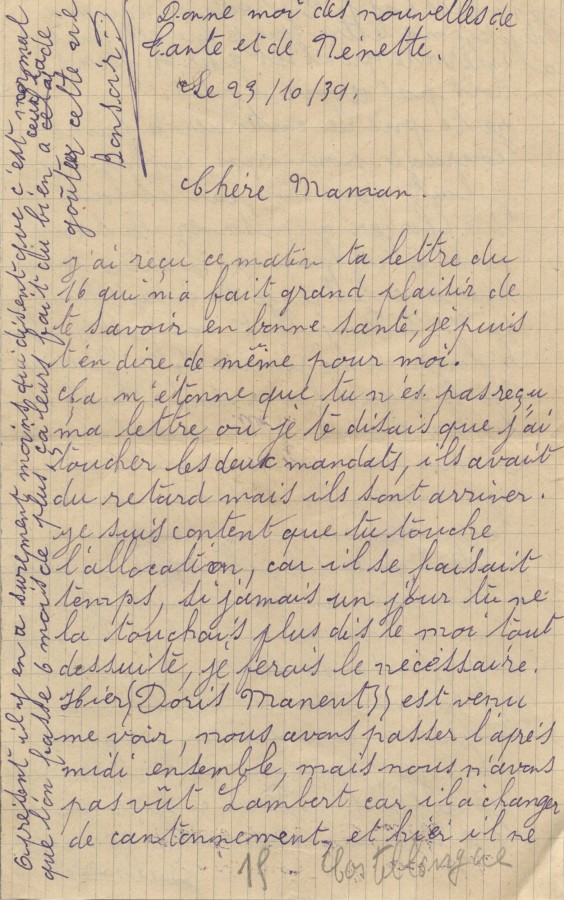 Donne moi des nouvelles de
Tante et de Nénette.
Le 23/10/39.
Chère Maman.
j'ai reçu ce matin ta lettre du
16 qui m'a fait grand plaisir de
te savoir en bonne santé, je puis
t'en dire de même pour moi.
Ca m'étonne que tu n'és pas reçu
ma lettre ou je te disais que j'ai
toucher les deux mandats, ils avait
du retard mais ils sont arriver.
je suis content que tu touche
l'allocation, car il se faisait
temps, si jamais un jour tu ne
la touchais plus dis le moi tout
dessuite, je ferais le nécéssaire.
Hier (Doris Manent)) est venu
me voir, nous avons passer l'après
midi ensemble, mais nous n'avons
pas vût Lambert car il a changer
de cantonnement, et hier il ne
15
a présent il y en a surement moins qui disent que c'est normal
que l'on passe 6 mois de plus, ça leurs fait du bien a
goûter cette vie
Bonsoir